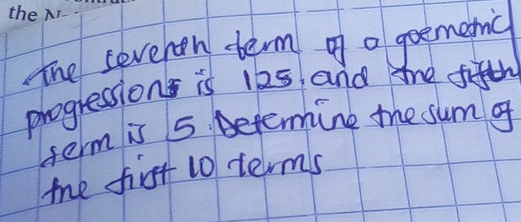 the N
The seventh term of a goemetric
progressions is 125. and the fifth
term is 5. Determine the sum of
the first 10 terms